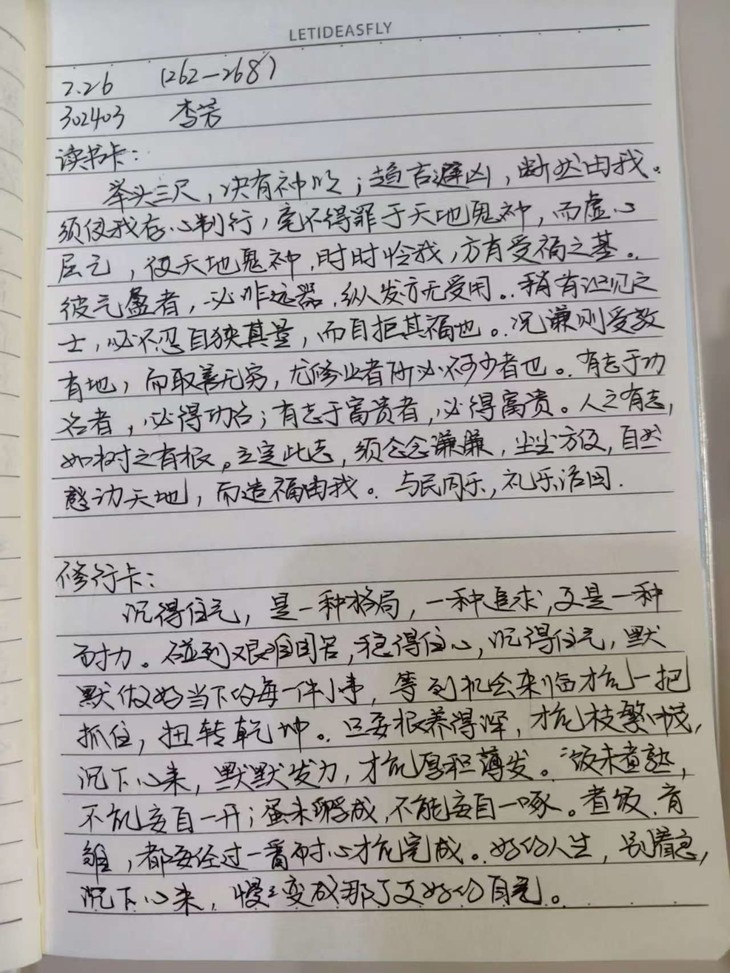 LETIDEASFLY
2.26 (262—268)
302403 李芳
读书卡：
举头三尺，决有神明；趋吉避凶，断然由我。
须使我存心制行，毫不得罪于天地鬼神，而虚心
屈己，使天地鬼神，时时怜我，方有受福之基。
彼气盈者，必非远器，纵发亦无受用。稍有识见之
士，必不忍自狭其量，而自拒其福也。况谦则受教
有地，而取善无穷，尤修业者所必不可少者也。有志于功
名者，必得功名；有志于富贵者，必得富贵。人之有志，
如树之有根。立定此志，须念念谦虚，尘尘方便，自然
感动天地，而造福由我。与民同乐，礼乐治国.
修行卡：
沉得住气，是一种格局，一种追求，又是一种
耐力。碰到艰难困苦，稳得住心，沉得住气，默
默做好当下的每一件小事，等到机会来临才能一把
抓住，扭转乾坤。只要根养得深，才能枝繁叶茂，
沉下心来，默默发力，才能厚积薄发。饭未煮熟，
不能妄自一开；蛋未孵成，不能妄自一啄。煮饭、育
雏，都要经过一番耐心才能完成。好的人生，别着急，
沉下心来，慢慢变成那个更好的自己。